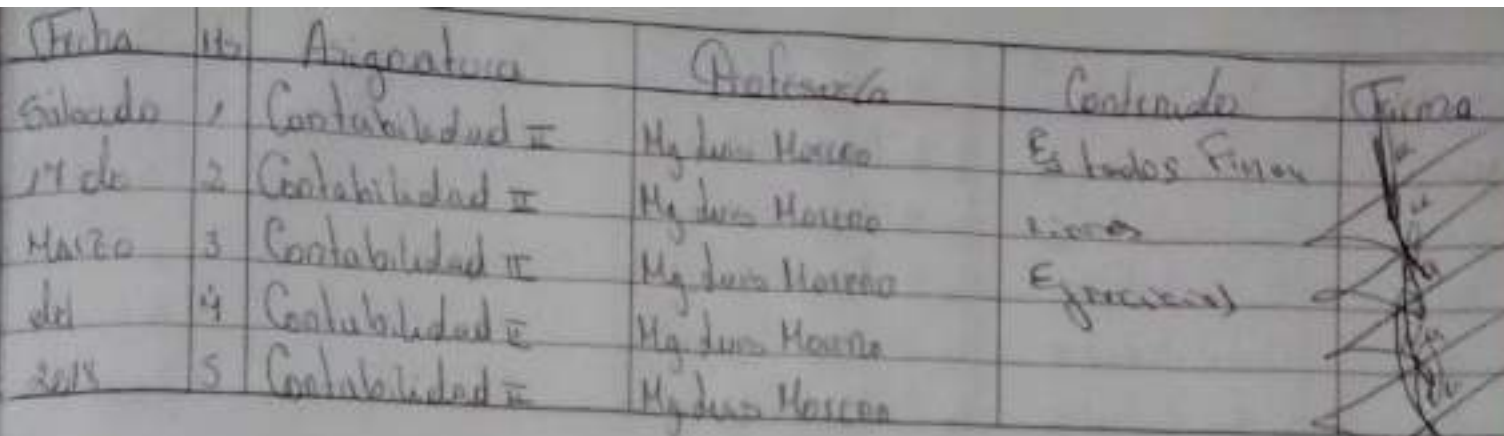 Fecha Hs Asignatura Profesor/a Contenido Firma
Sábado 1 Contabilidad II Mg Luis Moreno Estados Finan
17 de 2 Contabilidad II Mg Luis Moreno cieros
Marzo 3 Contabilidad II Mg Luis Moreno Ejercicios
del 4 Contabilidad II Mg Luis Moreno
2018 5 Contabilidad II Mg Luis Moreno